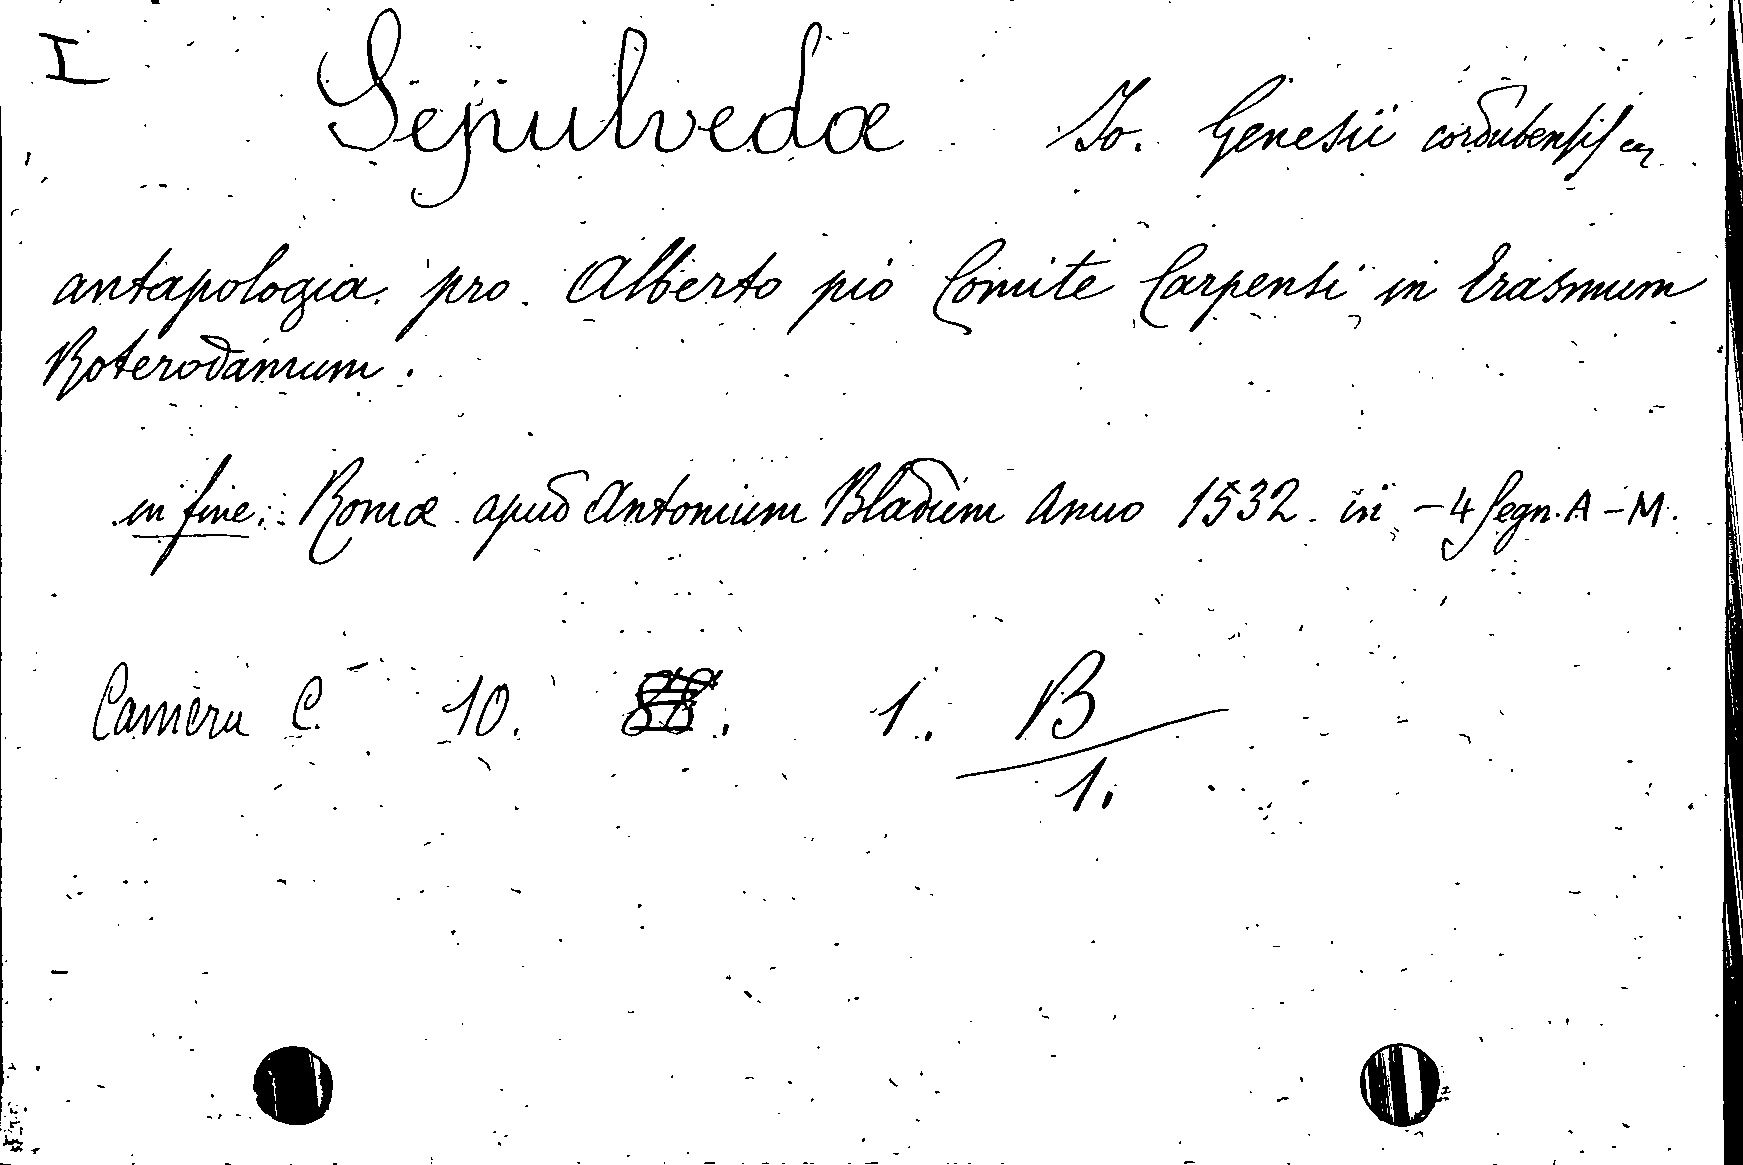 I
Sepulvedæ Io. Genesii cordubensis
antapologia pro Alberto pio Comite Carpensi in Erasmum
Roterodamum.
in fine: Romæ apud Antonium Bladum Anno 1532. in -4 segn. A-M.
Camera C. 10. 1. B
1.